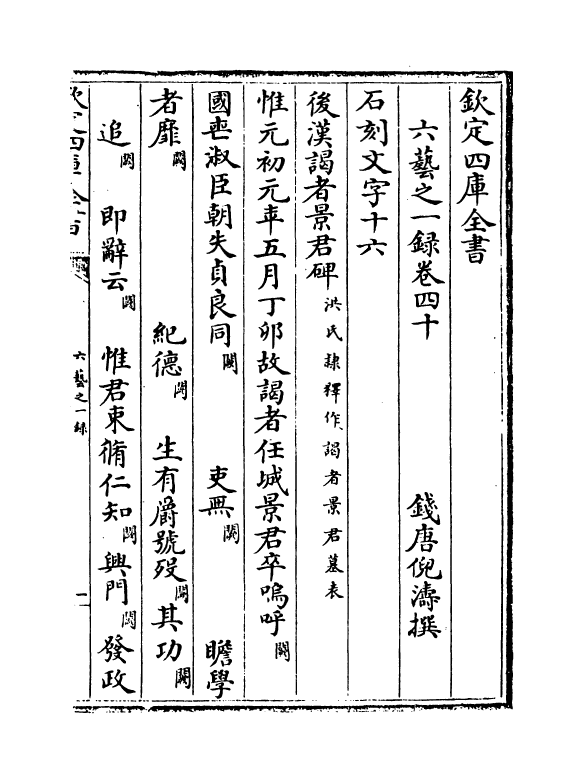 欽定四庫全書
六藝之一録卷四十
錢唐倪濤撰
石刻文字十六
後漢謁者景君碑洪氏隷釋作謁者景君墓表
惟元初元年五月丁卯故謁者任城景君卒嗚呼闕
國喪淑臣朝失貞良同闕 吏無闕 瞻學
者靡闕 紀德闕 生有爵號殁闕其功闕
追闕 即辭云闕 惟君束脩仁知闕興門闕發政
欽定四庫全書
六藝之一録
一